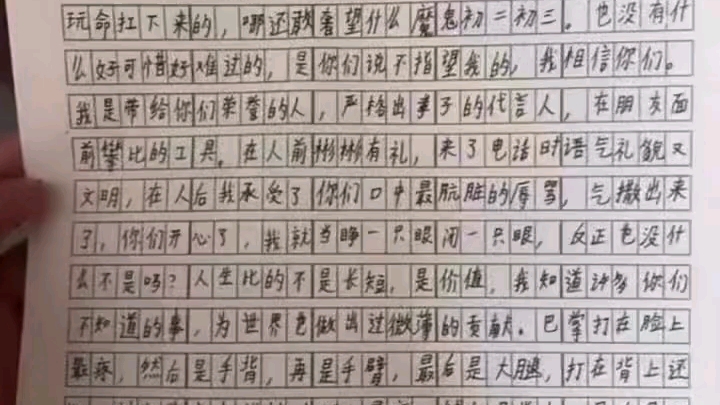 玩命扛下来的，哪还敢奢望什么魔鬼初二初三。也没有什
么好可惜好难过的，是你们说不指望我的，我相信你们。
我是带给你们荣誉的人，严格出事子的代言人，在朋友面
前攀比的工具。在人前彬彬有礼，来了电话时语气礼貌又
文明，在人后我承受了你们口中最肮脏的辱骂，气撒出来
了，你们开心了，我就当睁一只眼闭一只眼，反正也没什
么不是吗？人生比的不是长短，是价值，我知道许多你们
不知道的事，为世界也做出过微薄的贡献。巴掌打在脸上
最疼，然后是手背，再是手臂，最后是大腿，打在背上还